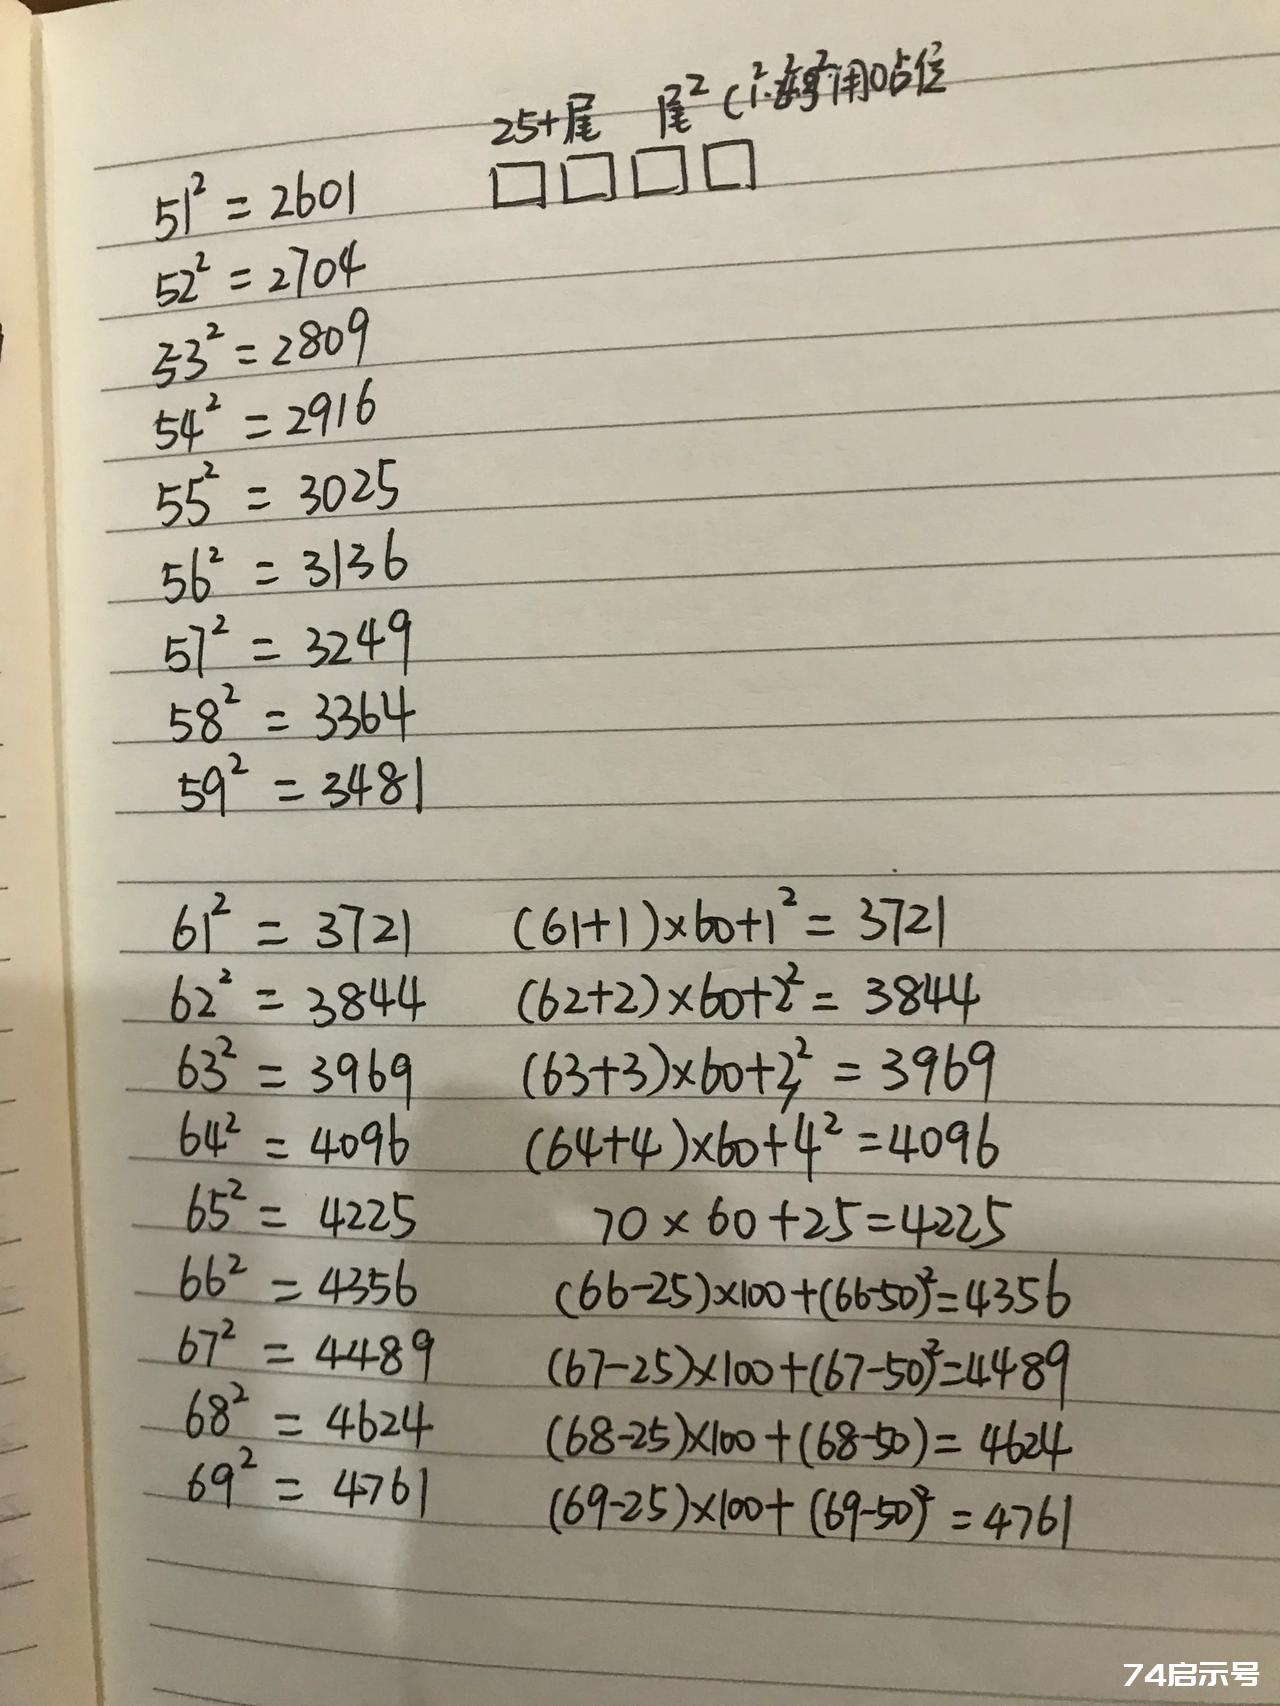 25+尾 尾² (1²·2²·3²用0占位
51² = 2601
52² = 2704
53² = 2809
54² = 2916
55² = 3025
56² = 3136
57² = 3249
58² = 3364
59² = 3481
61² = 3721 (61+1)×60+1² = 3721
62² = 3844 (62+2)×60+2² = 3844
63² = 3969 (63+3)×60+3² = 3969
64² = 4096 (64+4)×60+4² =4096
65² = 4225 70 × 60 +25=4225
66² = 4356 (66-25)×100+(66-50)²=4356
67² = 4489 (67-25)×100+(67-50)²=4489
68² = 4624 (68-25)×100+(68-50)= 4624
69² = 4761 (69-25)×100+ (69-50)² = 4761
74启示号